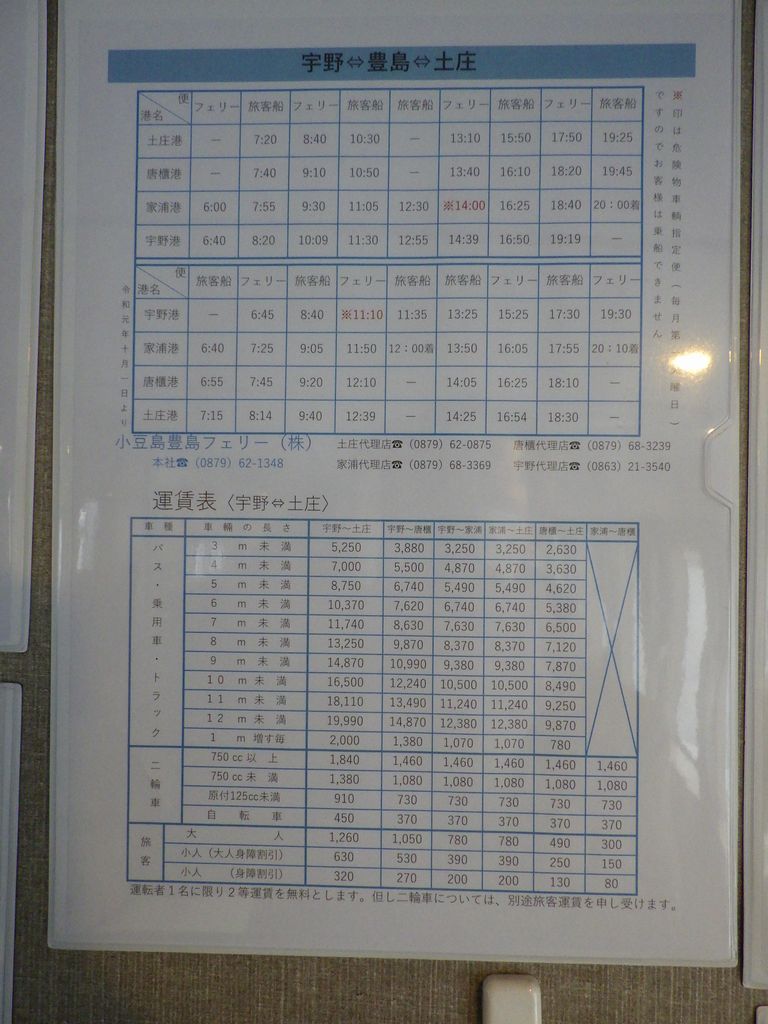 宇野⇔豊島⇔土庄
便 港名 フェリー 旅客船 フェリー 旅客船 旅客船 フェリー 旅客船 フェリー 旅客船
土庄港 — 7:20 8:40 10:30 — 13:10 15:50 17:50 19:25
唐櫃港 — 7:40 9:10 10:50 — 13:40 16:10 18:20 19:45
家浦港 6:00 7:55 9:30 11:05 12:30 ※14:00 16:25 18:40 20：00着
宇野港 6:40 8:20 10:09 11:30 12:55 14:39 16:50 19:19 —
便 港名 旅客船 フェリー 旅客船 フェリー 旅客船 旅客船 フェリー 旅客船 フェリー
宇野港 — 6:45 8:40 ※11:10 11:35 13:25 15:25 17:30 19:30
家浦港 6:40 7:25 9:05 11:50 12：00着 13:50 16:05 17:55 20：10着
唐櫃港 6:55 7:45 9:20 12:10 — 14:05 16:25 18:10 —
土庄港 7:15 8:14 9:40 12:39 — 14:25 16:54 18:30 —
※印は危険物車輌指定便（毎月第 火曜日）
ですのでお客様は乗船できません
令和元年十月一日より
小豆島豊島フェリー（株） 土庄代理店☎（0879）62-0875 唐櫃代理店☎（0879）68-3239
本社☎（0879）62-1348 家浦代理店☎（0879）68-3369 宇野代理店☎（0863）21-3540
運賃表〈宇野⇔土庄〉
車種 車輛の長さ 宇野～土庄 宇野～唐櫃 宇野～家浦 家浦～土庄 唐櫃～土庄 家浦～唐櫃
バス・乗用車・トラック
3 m 未 満 5,250 3,880 3,250 3,250 2,630
4 m 未 満 7,000 5,500 4,870 4,870 3,630
5 m 未 満 8,750 6,740 5,490 5,490 4,620
6 m 未 満 10,370 7,620 6,740 6,740 5,380
7 m 未 満 11,740 8,630 7,630 7,630 6,500
8 m 未 満 13,250 9,870 8,370 8,370 7,120
9 m 未 満 14,870 10,990 9,380 9,380 7,870
10 m 未 満 16,500 12,240 10,500 10,500 8,490
11 m 未 満 18,110 13,490 11,240 11,240 9,250
12 m 未 満 19,990 14,870 12,380 12,380 9,870
1 m 増す毎 2,000 1,380 1,070 1,070 780
二輪車
750 cc 以 上 1,840 1,460 1,460 1,460 1,460 1,460
750 cc 未 満 1,380 1,080 1,080 1,080 1,080 1,080
原付125cc未満 910 730 730 730 730 730
自 転 車 450 370 370 370 370 370
旅客
大 人 1,260 1,050 780 780 490 300
小人（大人身障割引） 630 530 390 390 250 150
小人 （身障割引） 320 270 200 200 130 80
運転者１名に限り２等運賃を無料とします。但し二輪車については、別途旅客運賃を申し受けます。